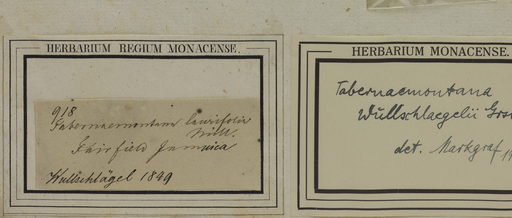 HERBARIUM REGIUM MONACENSE.
918
Tabernaemontana laurifolia
Willd.
Fairfield Jamaica
Wullschlägel 1849
HERBARIUM MONACENSE.
Tabernaemontana
Wullschlaegelii
det. Markgraf